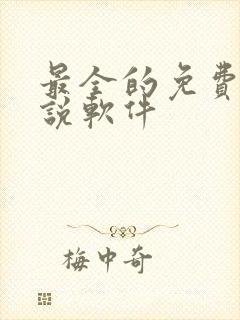 最全的免費
說軟件
梅中奇